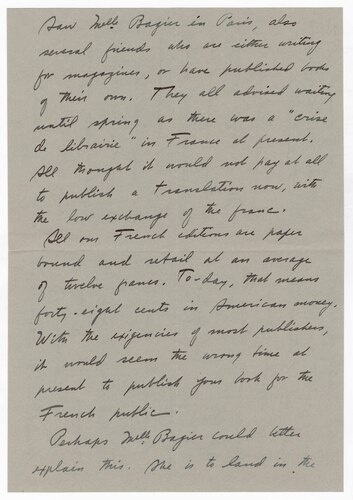 Saw Melle. Bagier in Paris, also
several friends who are either writing
for magazines, or have published books
of their own. They all advised waiting
until spring as there was a "crise
de librairie" in France at present.
All thought it would not pay at all
to publish a translation now, with
the low exchange of the franc.
All our French editions are paper
bound and retail at an average
of twelve francs. To-day, that means
forty-eight cents in American money.
With the exigencies of most publishers,
it would seem the wrong time at
present to publish your book for the
French public.
Perhaps Melle Bagier could better
explain this. She is to land in the